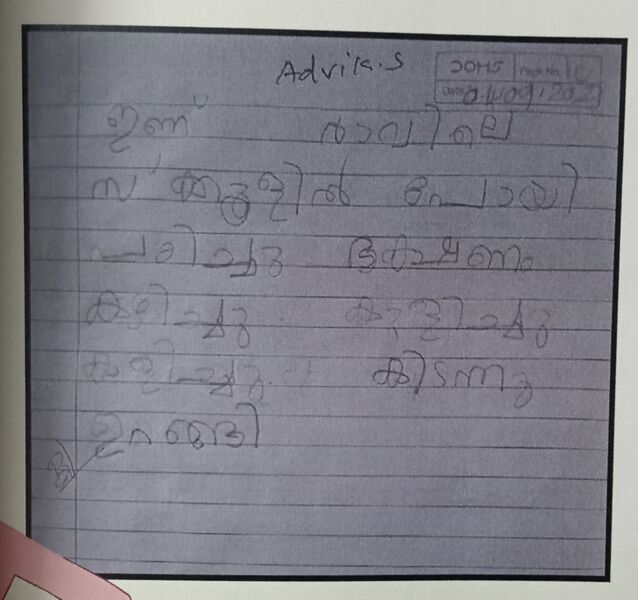 Advik.S
DOMS Page No.
Date
ഇണ് രാവിലെ
സ് ക്കൂളിൽ പോയി
പഠിച്ചു ഭക്ഷണം
കഴിച്ചു കുളിച്ചു
കളിച്ചു കിടന്നു
ഉറങ്ങി